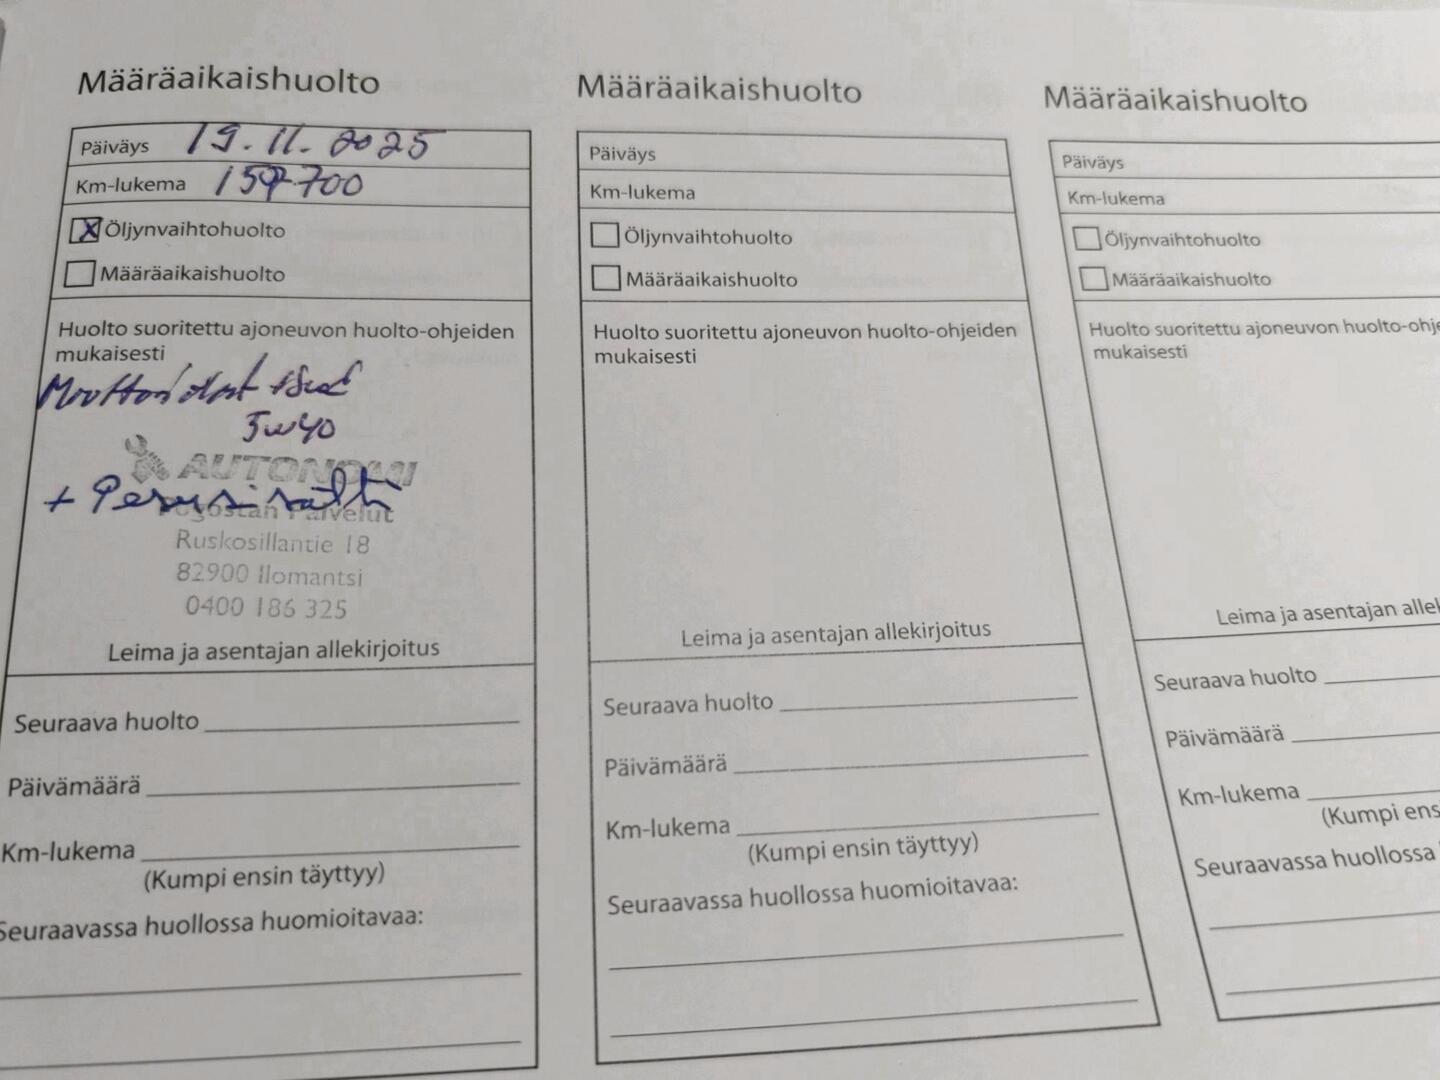 Määräaikaishuolto
Päiväys 19.11.2025
Km-lukema 159700
Öljynvaihtohuolto
Määräaikaishuolto
Huolto suoritettu ajoneuvon huolto-ohjeiden
mukaisesti
5w40
AUTONOMI
+ Perus
Pogostan Palvelut
Ruskosillantie 18
82900 Ilomantsi
0400 186 325
Leima ja asentajan allekirjoitus
Seuraava huolto
Päivämäärä
Km-lukema
(Kumpi ensin täyttyy)
Seuraavassa huollossa huomioitavaa:
Määräaikaishuolto
Päiväys
Km-lukema
Öljynvaihtohuolto
Määräaikaishuolto
Huolto suoritettu ajoneuvon huolto-ohjeiden
mukaisesti
Leima ja asentajan allekirjoitus
Seuraava huolto
Päivämäärä
Km-lukema
(Kumpi ensin täyttyy)
Seuraavassa huollossa huomioitavaa:
Määräaikaishuolto
Päiväys
Km-lukema
Öljynvaihtohuolto
Määräaikaishuolto
Huolto suoritettu ajoneuvon huolto-ohje
mukaisesti
Leima ja asentajan allek
Seuraava huolto
Päivämäärä
Km-lukema
(Kumpi ens
Seuraavassa huollossa